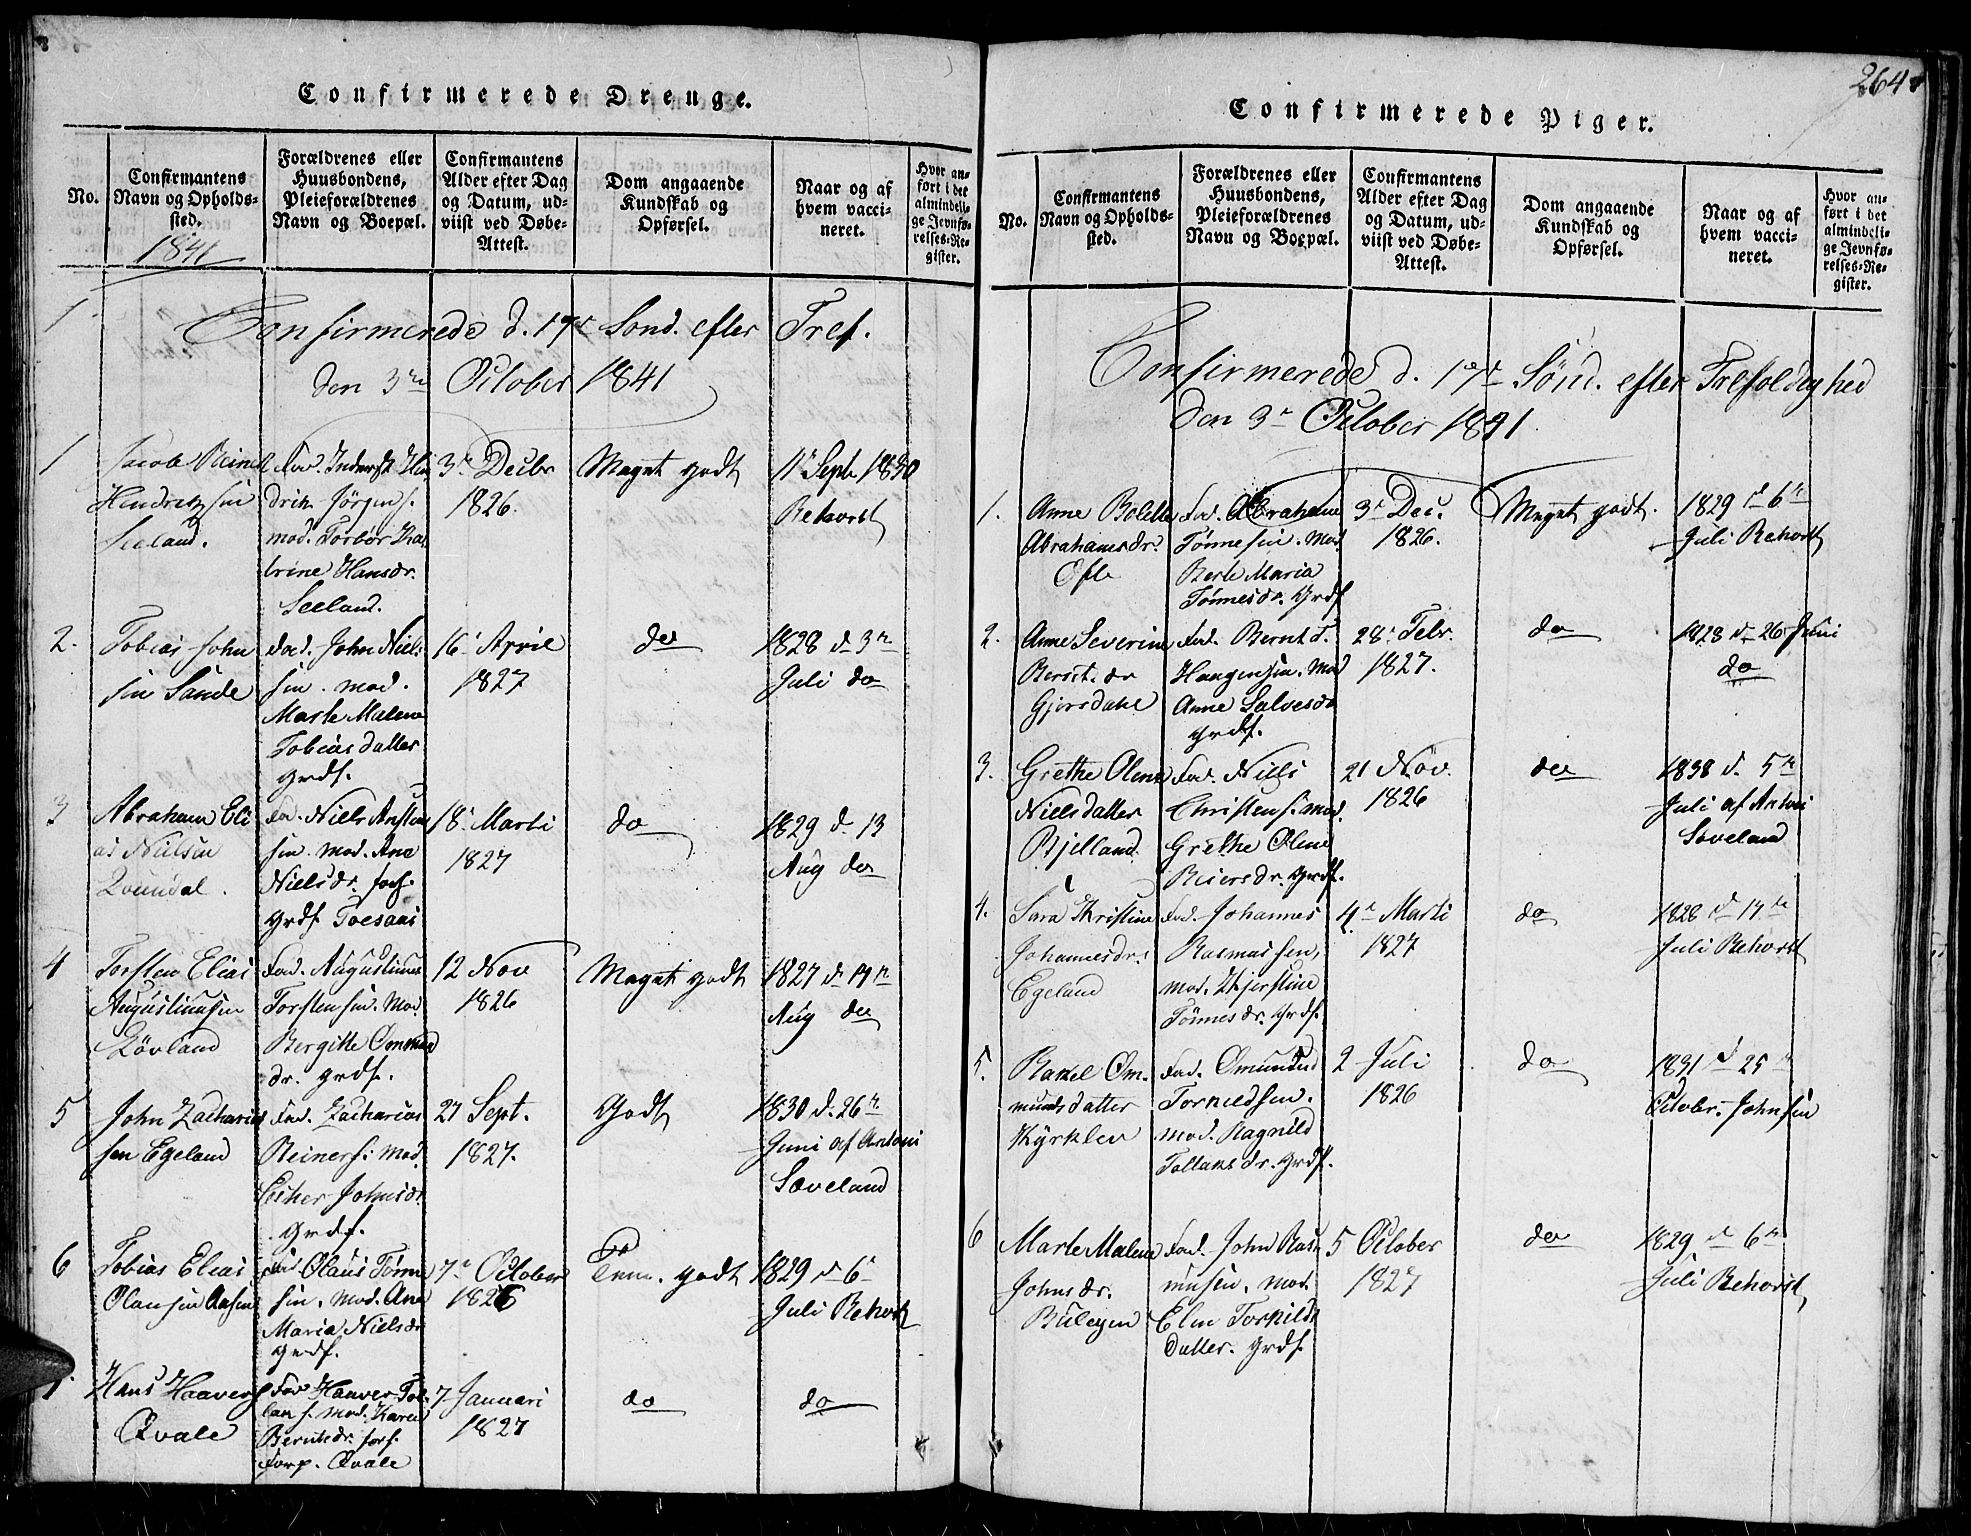 Confirmerede Drenge.
No.
Confirmantens
Navn og Opholds-
sted.
1841
Forældrenes eller
Huusbondens,
Pleieforældrenes
Navn og Boepæl.
Confirmantens
Alder efter Dag
og Datum, ud-
viist ved Døbe-
Attest.
Dom angaaende
Kundskab og
Opførsel.
Naar og af
hvem vacci-
neret.
Hvor an-
ført i det
almindeli-
ge Jevnfø-
relses-Re-
gister.
Confirmerede d. 17de Sønd. efter Tref.
den 3die October 1841
1
Jacob Reinert
Hendriksen
Seeland.
Fad. Inderst Hen
drik Jørgens.
mod. Torbør Ka
trine Hansdr.
Seeland.
3e Decbr
1826.
Meget godt
11 Septb 1830
Rehorst
2.
Tobias John
sen Sande
Fad. John Niel
sen. mod.
Marte Malene
Tobiasdatter
grdf.
16 April
1827
do
1828 d. 3e
Juli do
3
Abraham Eli
as Nielsen
Qvindal.
Fad. Niels
sen. mod. Ane
Nielsdr.
grdf.
18 Marti
1827
do
1829 d. 13
Aug do
4
Torsten Elias
Augustinusen
Røvland
Fad. Augustinus
Torstensen. Mod.
Bergitte Ommund
dr. grdf.
12 Nov
1826
Meget godt
1827 d. 14e
Aug do
5
John Zacharias
sen Egeland
Fad. Zacharias
Reiners. mod.
Esther Johnsdr.
grdf.
27 Sept.
1827.
Godt
1830 d. 26e
Juni af Antoni
Soveland
6
Tobias Elias
Olausen Aasen
Fad Olaus Tønne
sen. mod. Ane
Maria Nielsdr
grdf.
7e October
1826
Tem. godt
1829 d 6e
Juli Rehorst
7.
Hans Haavers
Qvale
Fad Haaver Tol
lans. mod. Karen
Berntsdr.
Forp. Qvale
7 Januari
1827
do
do
264
Confirmerede Piger.
No.
Confirmantens
Navn og Opholds-
sted.
Forældrenes eller
Huusbondens,
Pleieforældrenes
Navn og Boepæl.
Confirmantens
Alder efter Dag
og Datum, ud-
viist ved Døbe-
Attest.
Dom angaaende
Kundskab og
Opførsel.
Naar og af
hvem vacci-
neret.
Hvor an-
ført i det
almindeli-
ge Jevnfø-
relses-Re-
gister.
Confirmerede d. 17de Sønd. efter Trefoldighed
den 3e October 1841
1.
Anne Bolette
Abrahamsdr.
Ofte
Fad. Abraham
Tønnesen. Mod.
Berte Maria
Tønnesdr. grdf
3e Dec.
1826.
Meget godt.
1829 d 6e
Juli Rehorst
2.
Anne Severine
Bernt. dr
Gjersdahl
Fad. Bernt T.
Haugensen. Mod
Anne Salvesdr
grdf.
28 Febr.
1827.
do
1828 d 26 Juni
do
3.
Grethe Oline
Nielsdatter
Bjelland
Fad. Niels
Christens. mod.
Grethe Oline
Reiersdr. grdf.
21 Nov.
1826
do
1838 d. 5e
Juli af Antoni
Soveland
4.
Sara Kristine
Johannesdr.
Egeland
Fad. Johannes
Rasmussen,
mod. Kjerstine
Tønnesdr. grdf.
4e Marti
1827
do
1828 d 14de
Juli Rehorst
5.
Rakel Om.
mundsdatter
Kyrklev
Fad. Omund
Torkildsen.
mod. Ragnild
Tollaksdr. grdf.
2 Juli
1826
do
1831 d 25e
Octobr. Johnsen
6
Marte Malene
Johnsdr.
Buleyen
Fad. John Ras
musen. mod.
Elen Torkilds
datter. grdf.
5 October
1827
do
1829 d 6e
Juli Rehorst